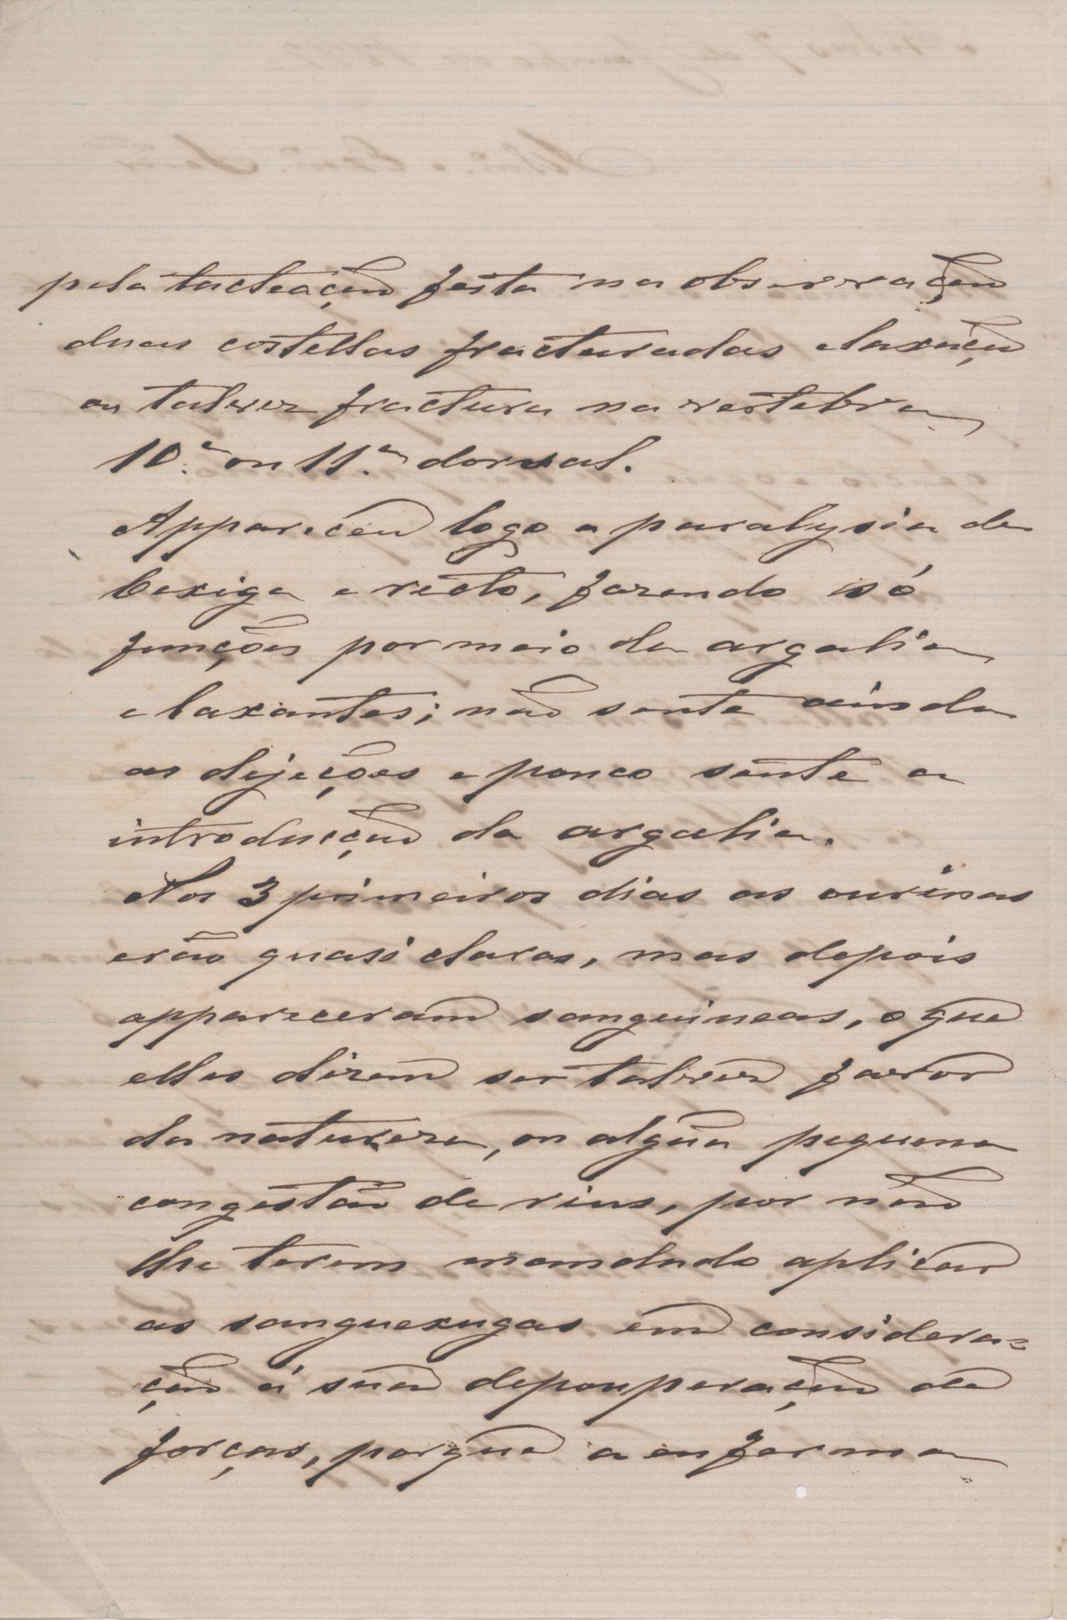 pela tacteação feita na observação
duas costellas fracturadas e laxação
ou talvez fractura na vertebra
10.ª ou 11.ª dorsal.
Appareceu logo a paralysia da
bexiga e recto, fazendo só
funções por meio da argalia
e laxantes; não sente ainda
as dejeções e pouco sente a
introducção da argalia.
Nos 3 primeiros dias as ourinas
erão quasi claras, mas depois
appareceram sanguineas, o que
elles dizem ser talvez favor
da natureza, ou algũa pequena
congestão de rins, por não
lhe terem mandado aplicar
as sanguexugas em considera=
ção á sua depouperação de
forças, porque a enferma